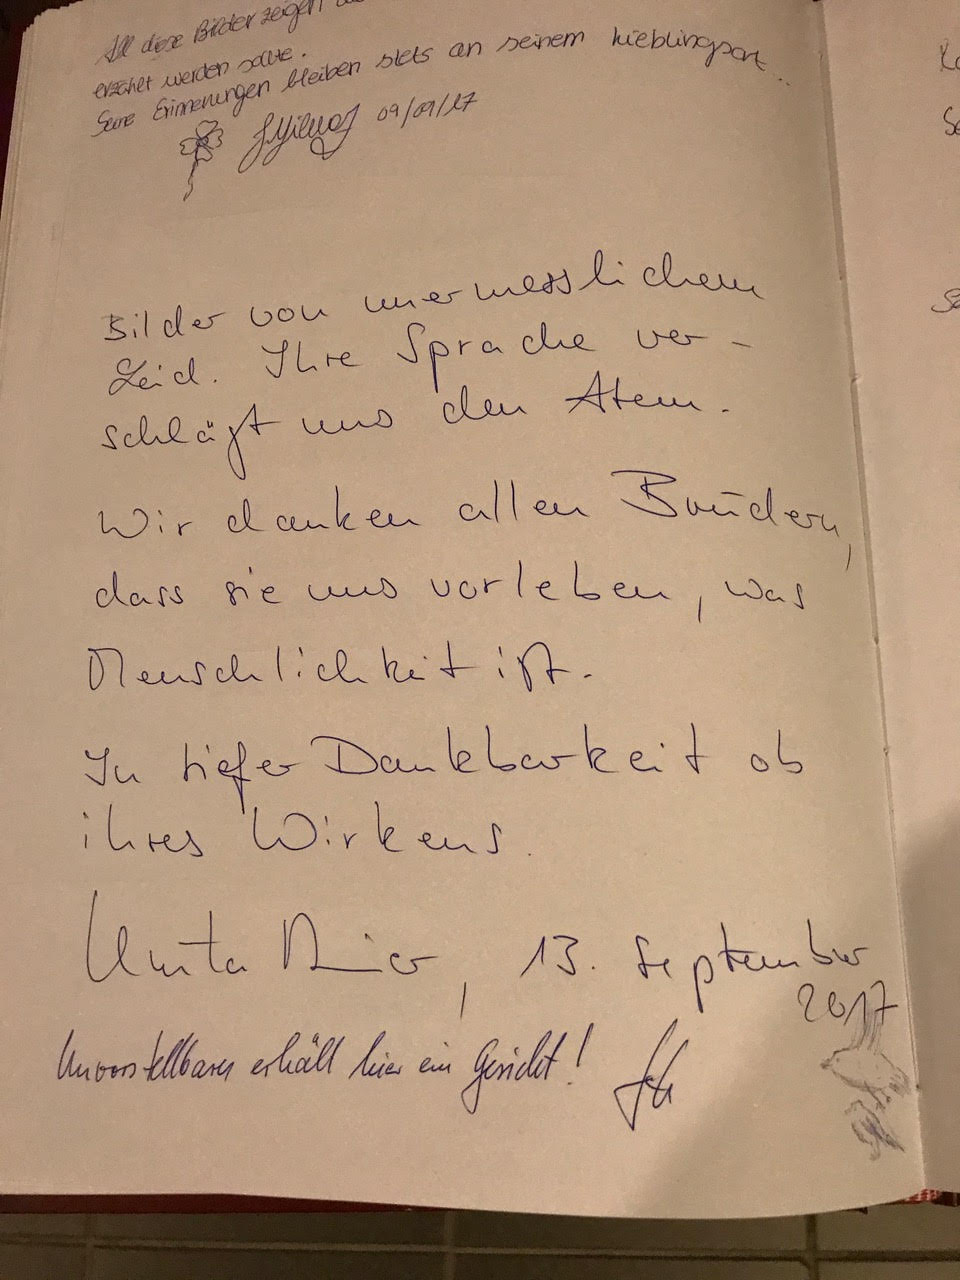 All diese Bilder zeigen
erzählt werden sollte.
Seine Erinnerungen bleiben stets an seinem Lieblingsort...
09/09/17
Bilder von unermesslichem
Leid. Ihre Sprache ver-
schlägt uns den Atem.
Wir danken allen Brüdern,
dass sie uns vorleben, was
Menschlichkeit ist.
In tiefer Dankbarkeit ob
ihres Wirkens.
13. September
2017
Unvorstellbares erhält hier ein Gesicht!